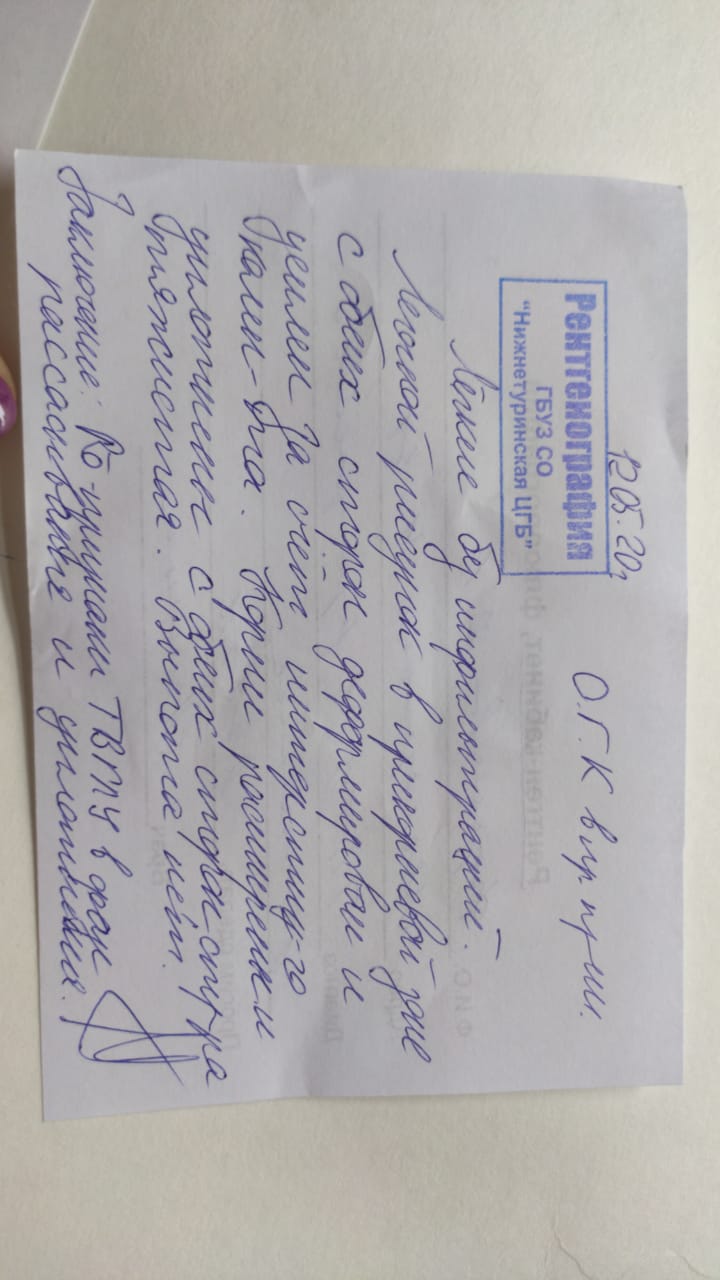 12.05.20г
Рентгенография
ГБУЗ СО
"Нижнетуринская ЦГБ"
О.Г.К в пр. пр-ии.
Рентген-кабинет,
Лёгкие бу инфильтраций.
Ф.И.О.
Легочной рисунок в прикорневой зоне
с обеих сторон деформирован и
Диагноз
усилен за счёт интерстиц-го
комп-та. Корни расширены и
Просим сделать
уплотнены с обеих сторон, стр-ра
тяжистая. Выпота нет.
Врач
Заключение: Ro-признаки ТВГЛУ в фазе
рассасывания и уплотнения.